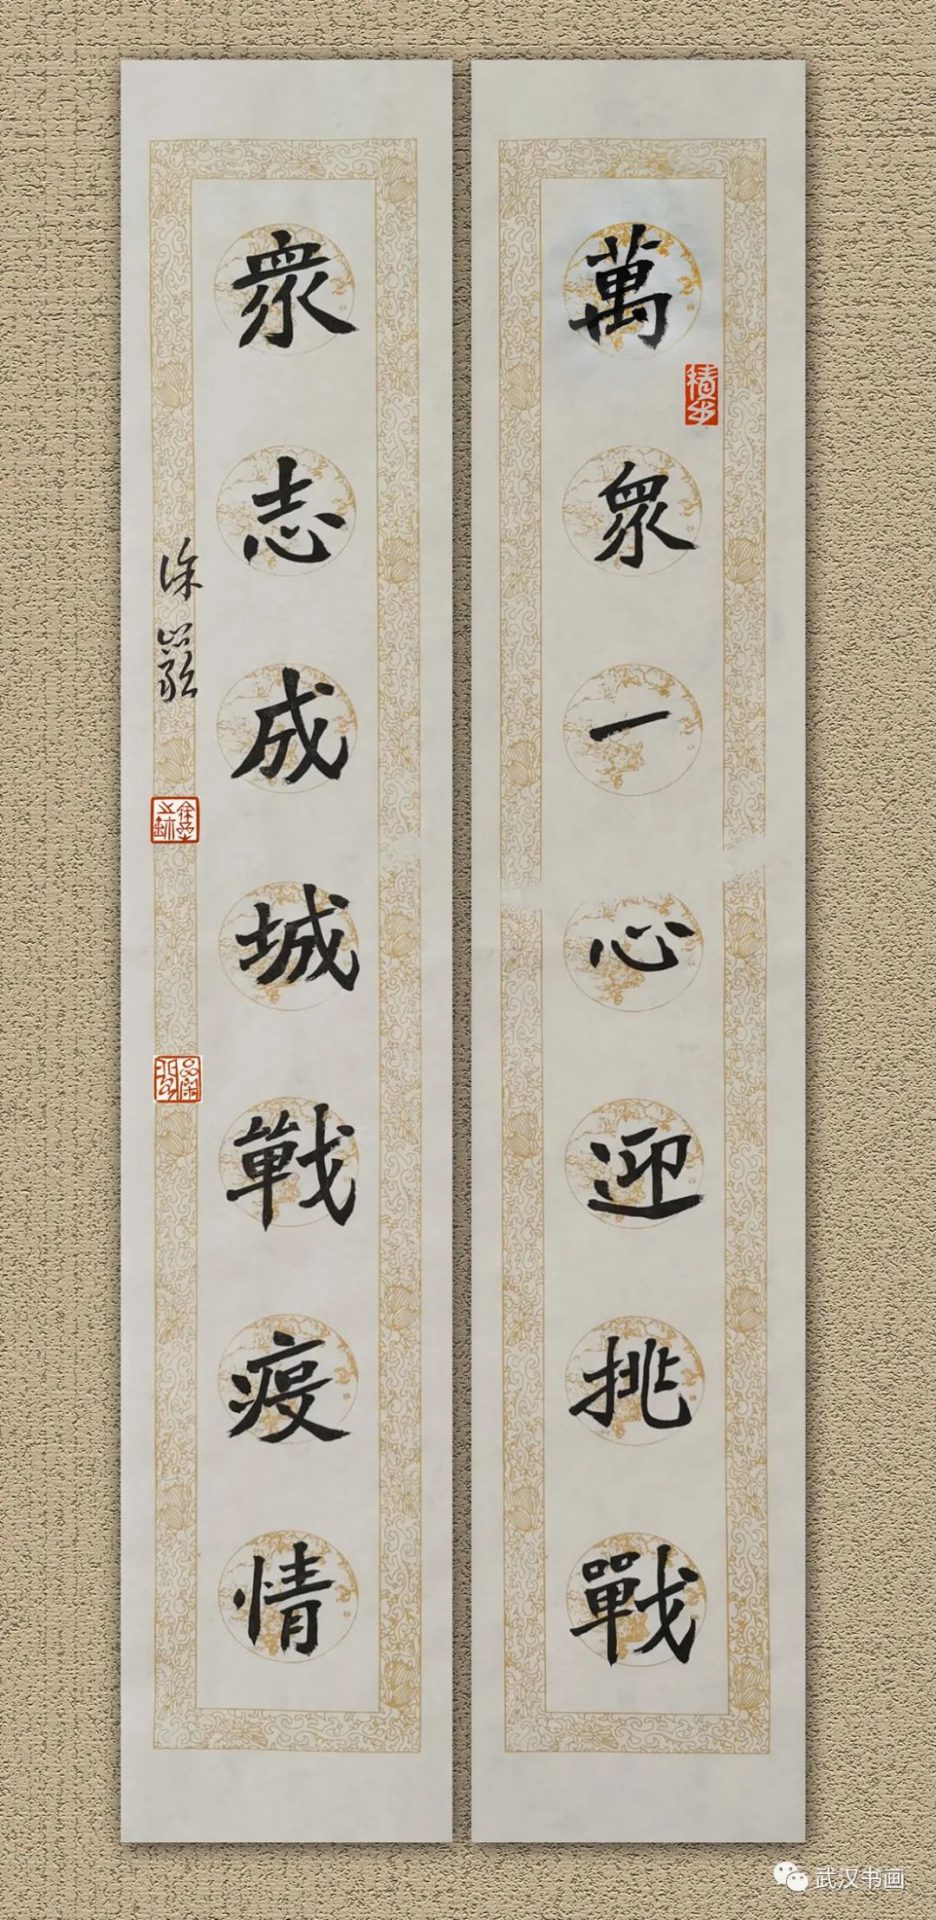 萬眾一心迎挑戰
眾志成城戰疫情
徐
積步
武汉书画